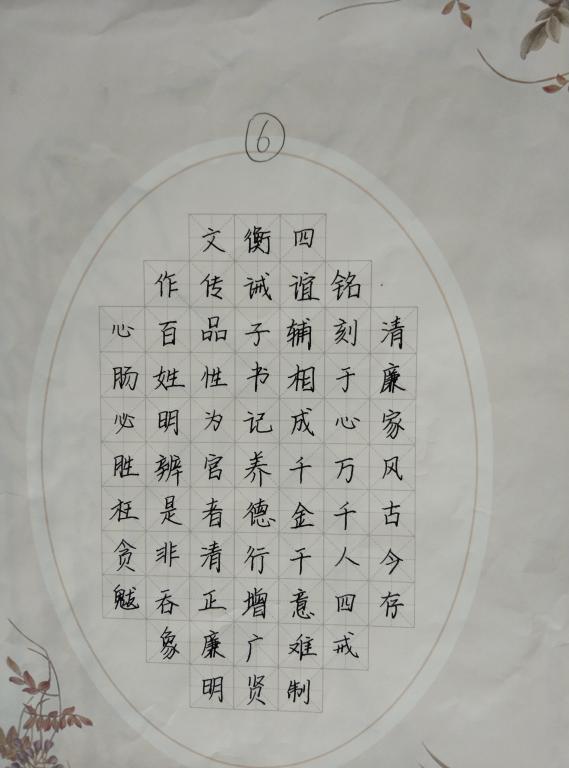 6
清廉家风古今存
铭刻于心万千人四戒
四谊辅相成千金干意难制
衡诫子书记养德行增广贤
文传品性为官者清正廉明
作百姓明辨是非吞象
心肠必胜枉贪